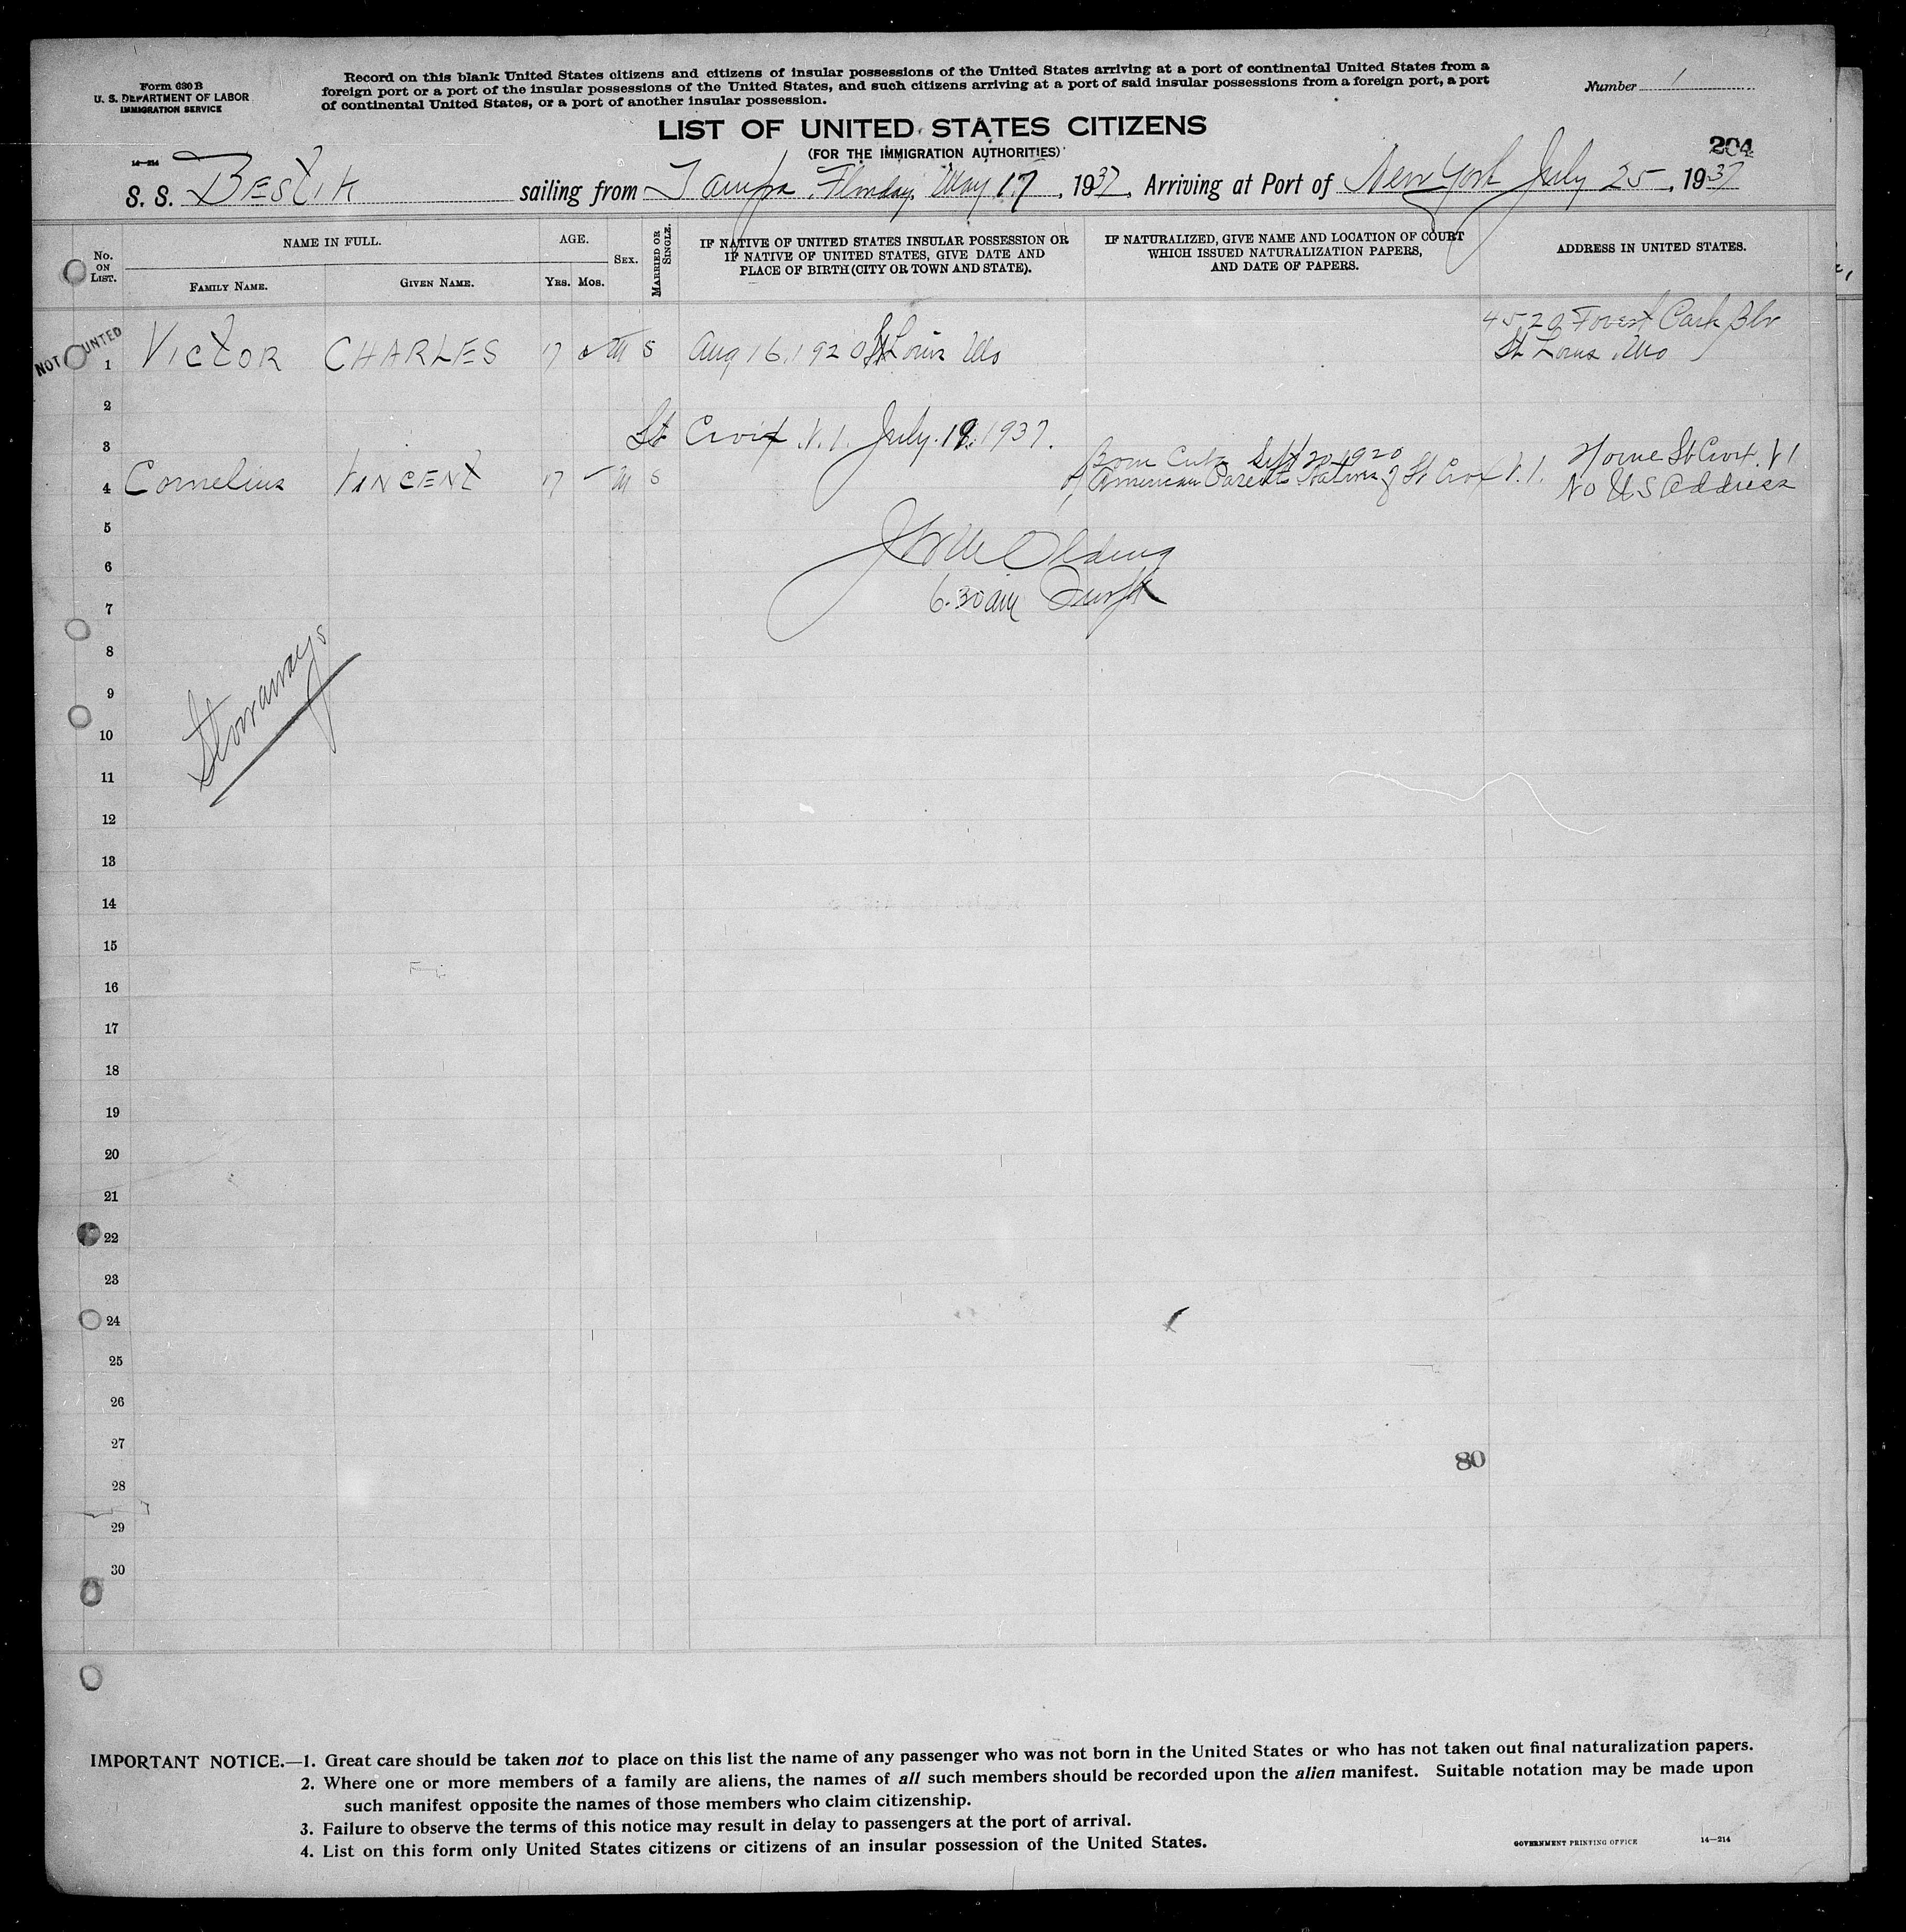 Form 630 B
U. S. DEPARTMENT OF LABOR
IMMIGRATION SERVICE
Record on this blank United States citizens and citizens of insular possessions of the United States arriving at a port of continental United States from a
foreign port or a port of the insular possessions of the United States, and such citizens arriving at a port of said insular possessions from a foreign port, a port
of continental United States, or a port of another insular possession.
Number 1
LIST OF UNITED STATES CITIZENS
(FOR THE IMMIGRATION AUTHORITIES)
204
14—214
S. S. BESTIK sailing from Tampa, Florida, May 17, 1937, Arriving at Port of New York July 25, 1937
No. ON LIST.
NAME IN FULL.
FAMILY NAME.
GIVEN NAME.
AGE.
YRS. MOS.
SEX.
MARRIED OR SINGLE.
IF NATIVE OF UNITED STATES INSULAR POSSESSION OR
IF NATIVE OF UNITED STATES, GIVE DATE AND
PLACE OF BIRTH (CITY OR TOWN AND STATE).
IF NATURALIZED, GIVE NAME AND LOCATION OF COURT
WHICH ISSUED NATURALIZATION PAPERS,
AND DATE OF PAPERS.
ADDRESS IN UNITED STATES.
NOT UNTED
1 VICTOR CHARLES 17 M S Aug 16, 1920 St Louis Mo
4529 Forest Park Blv
St Louis, Mo
2
3 St Croix V.I. July 19, 1937.
4 Cornelius VINCENT 17 M S
Born Cuba Sept 20 1920
of American Parents Natives of St Croix V.I.
Home St Croix V I
No US Address
5
6
7 6.30 am
8
Stowaways
9
10
11
12
13
14
15
16
17
18
19
20
21
22
23
24
25
26
27
80
28
29
30
IMPORTANT NOTICE.—1. Great care should be taken not to place on this list the name of any passenger who was not born in the United States or who has not taken out final naturalization papers.
2. Where one or more members of a family are aliens, the names of all such members should be recorded upon the alien manifest. Suitable notation may be made upon
such manifest opposite the names of those members who claim citizenship.
3. Failure to observe the terms of this notice may result in delay to passengers at the port of arrival.
4. List on this form only United States citizens or citizens of an insular possession of the United States.
GOVERNMENT PRINTING OFFICE 14—214